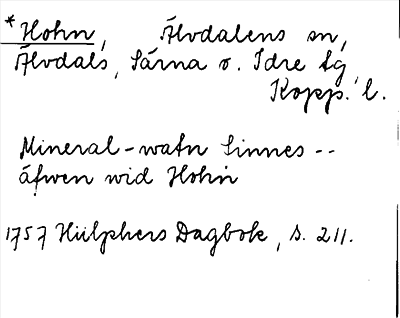 *Hohn, Älvdalens sn,
Älvdals, Särna o. Idre tg
Kopp. l.
Mineral-watn finnes --
äfwen wid Hohn
1757 Hülphers Dagbok, s. 211.